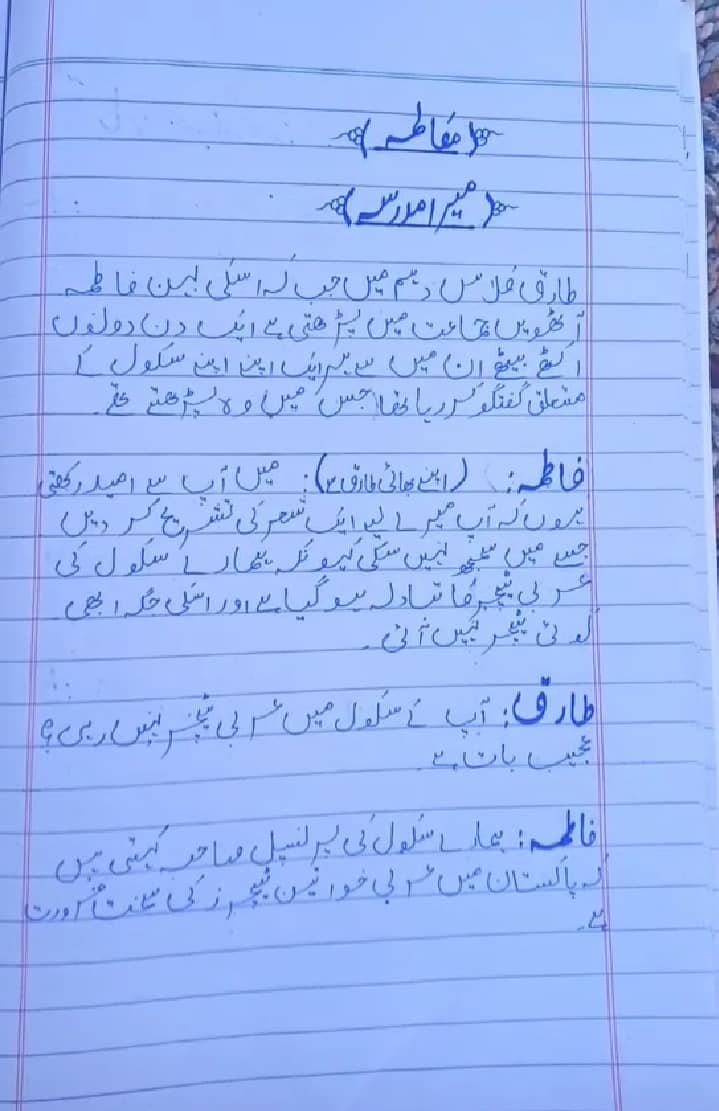 (مفاطمہ)
(میرا مدرسہ)
طارق کلاس دہم میں جب کہ اسکی بہن فاطمہ
آٹھویں جماعت میں پڑھتی ہے ایک دن دونوں
اکٹھے بیٹھے ان میں سے ہر ایک اپنے اپنے سکول کے
متعلق گفتگو کر رہا تھا جس میں وہ پڑھتے تھے۔
فاطمہ: (اپنے بھائی طارق سے): میں آپ سے امید رکھتی
ہوں کہ آپ میرے لیے ایک شعر کی تشریح کر دیں
جسے میں سمجھ نہیں سکی کیونکہ ہمارے سکول کی
عربی ٹیچر کا تبادلہ ہو گیا ہے اور اسکی جگہ ابھی
کوئی ٹیچر نہیں آئی۔
طارق: آپ کے سکول میں عربی ٹیچر نہیں رہی؟
عجیب بات ہے۔
فاطمہ: ہمارے سکول کی پرنسپل صاحبہ کہتی ہیں
کہ پاکستان میں عربی خواتین ٹیچرز کی سخت ضرورت
ہے۔